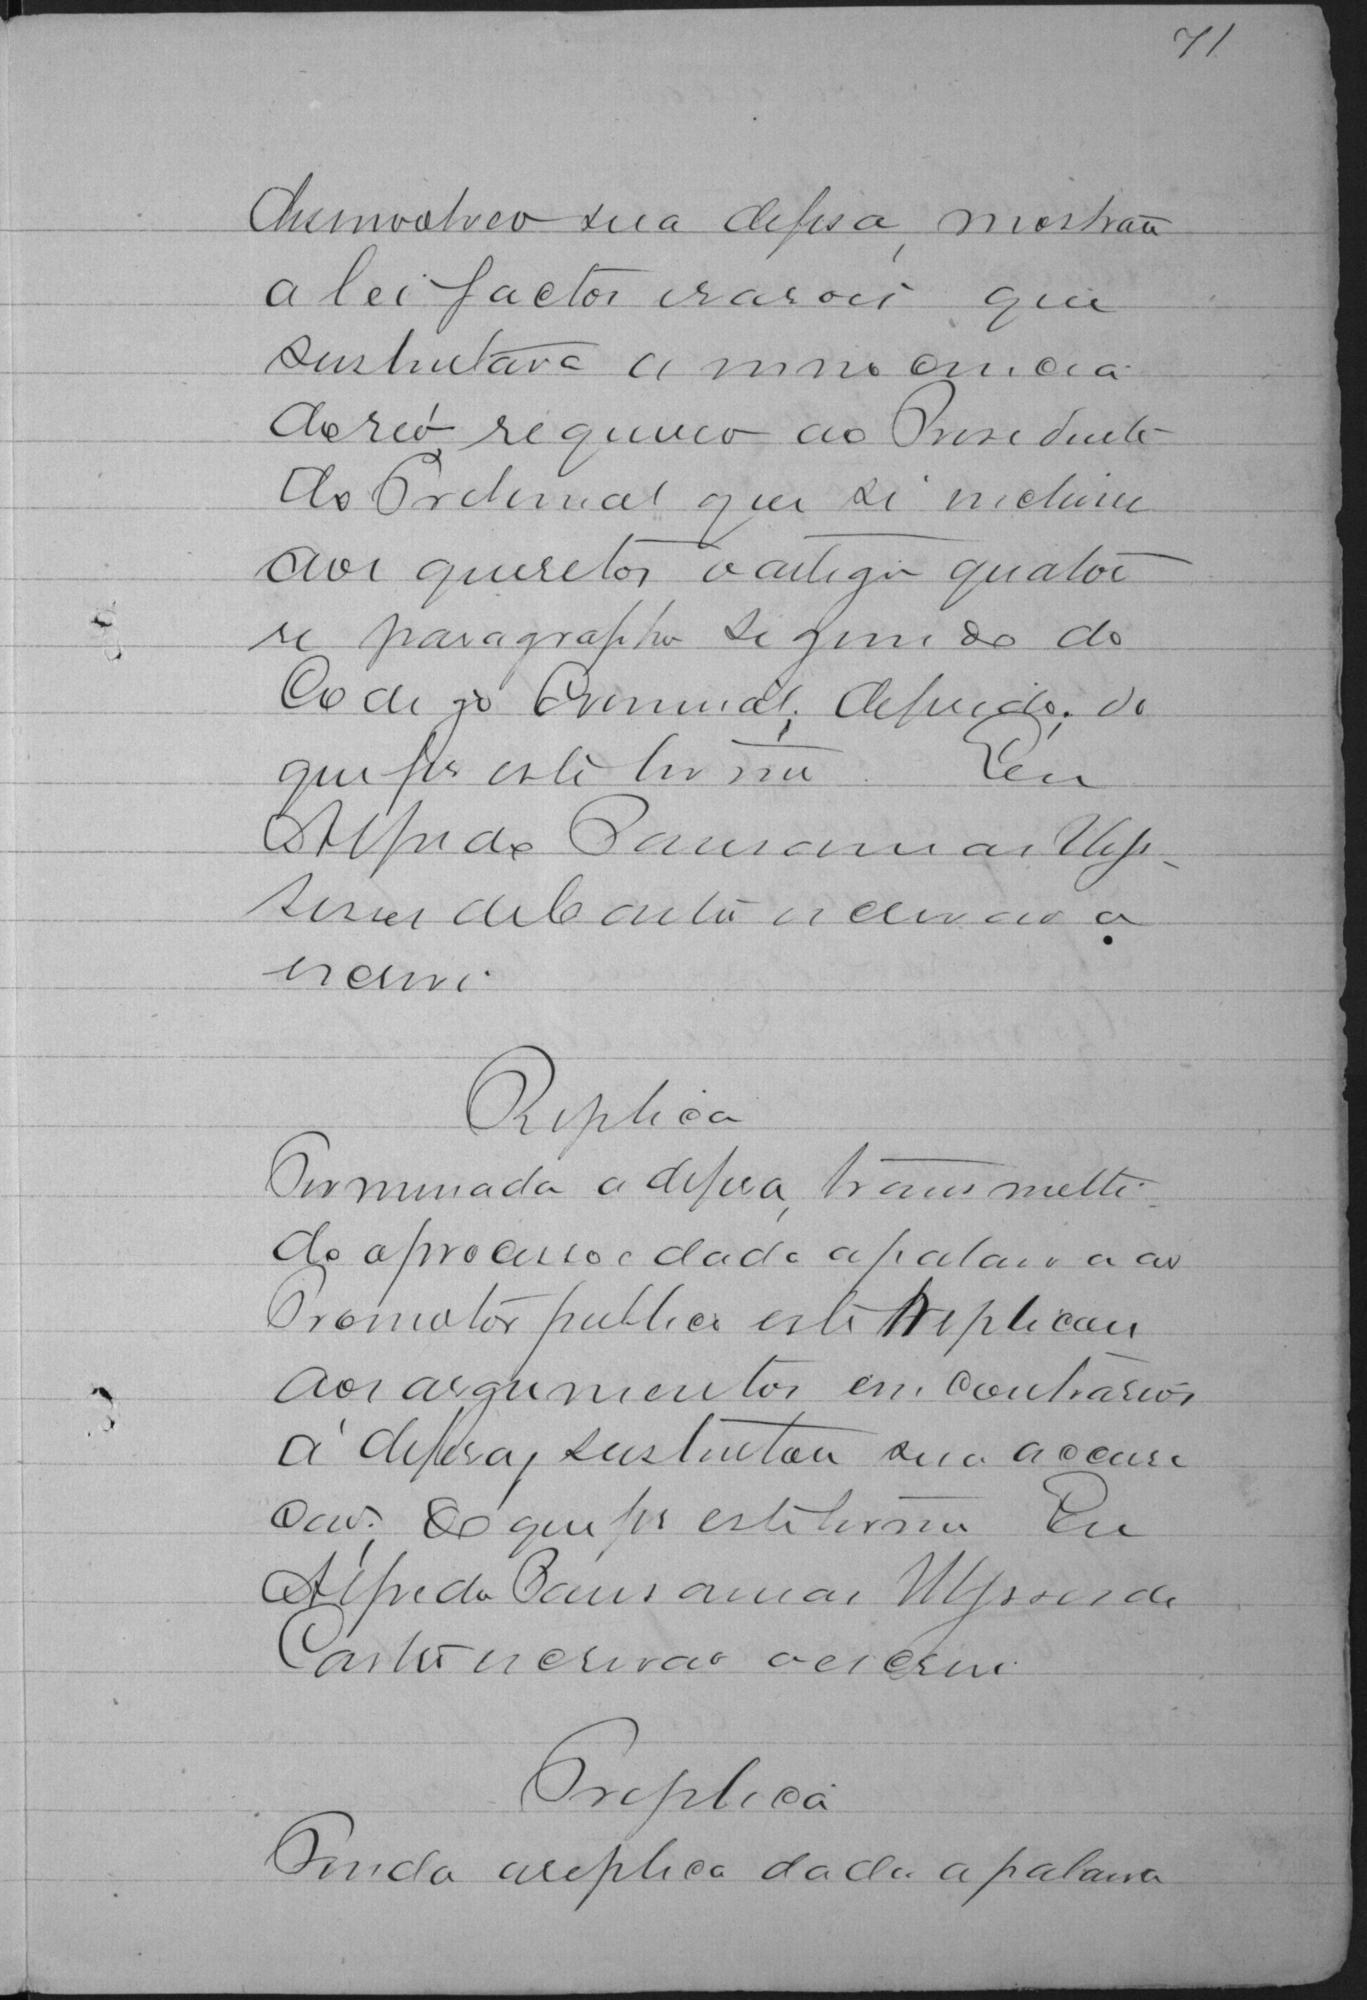 71
desinvolveo sua defesa, mostran
a lei factos e rasoes que
sustentava a innocencia
do reo, requereo ao Presidente
do Tribunal que se incluise
aos quesetos o artigo quator
se paragrapho segundo do
Codigo Criminal, deferido; do
que fis este termo. Eu
Alfredo Pausanias Ulys-
ses de Couto escrivão o
escrevi.
Replica
Terminada a defesa, transmetti-
do o processo e dada a palavra ao
Promotor publico este Replicou
aos argumentos em contrarios
á defesa, sustentou sua accusa
ção; do que fis este termo Eu
Alfredo Pausanias Ulysses de
Couto escrivão o escrevi.
Treplica
Finda a replica dada a palavra